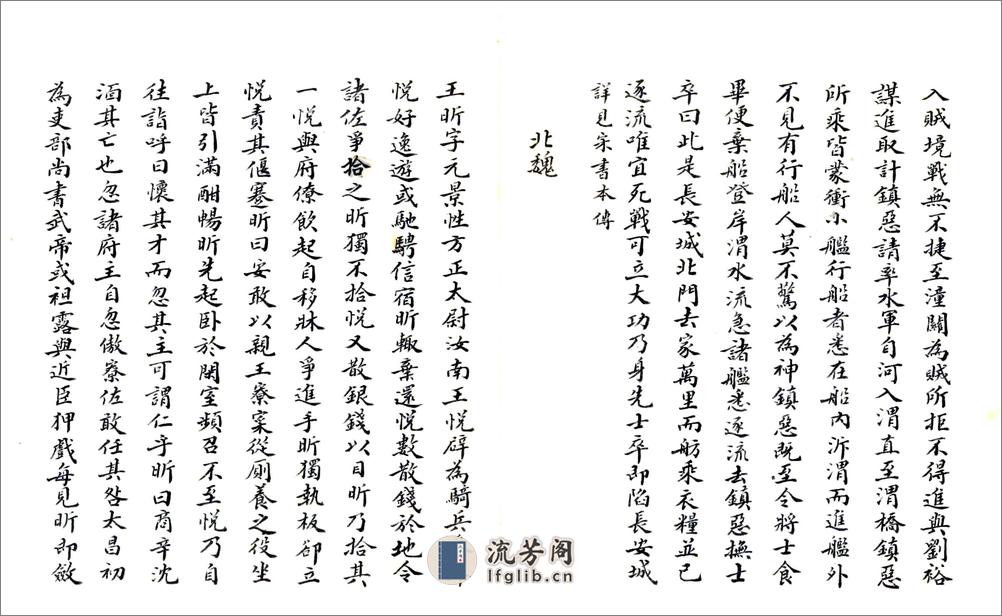 入賊境戰無不捷至潼關為賊所拒不得進與劉裕
謀進取計鎮惡請率水軍自河入渭直至渭橋鎮惡
所乘皆蒙衝小艦行船者悉在船內泝渭而進艦外
不見有行船人莫不驚以為神鎮惡既至令將士食
畢便棄船登岸渭水流急諸艦悉逐流去鎮惡撫士
卒曰此是長安城北門去家萬里而舫乘衣糧並已
逐流唯宜死戰可立大功乃身先士卒即陷長安城
詳見宋書本傳
北魏
王昕字元景性方正太尉汝南王悅辟為騎兵
悅好逸遊或馳騁信宿昕輒棄還悅數散錢於地令
諸佐爭拾之昕獨不拾悅又散銀錢以目昕乃拾其
一悅與府僚飲起自移牀人爭進手昕獨執板卻立
悅責其偃蹇昕曰安敢以親王寮寀從厠養之役坐
上皆引滿酣暢昕先起卧於閑室頻召不至悅乃自
往詣呼曰懷其才而忽其主可謂仁乎昕曰商辛沈
湎其亡也忽諸府王自忽傲寮佐敢任其咎太昌初
為吏部尚書武帝或袒露與近臣狎戲每見昕即斂
流芳阁
lfglib.cn